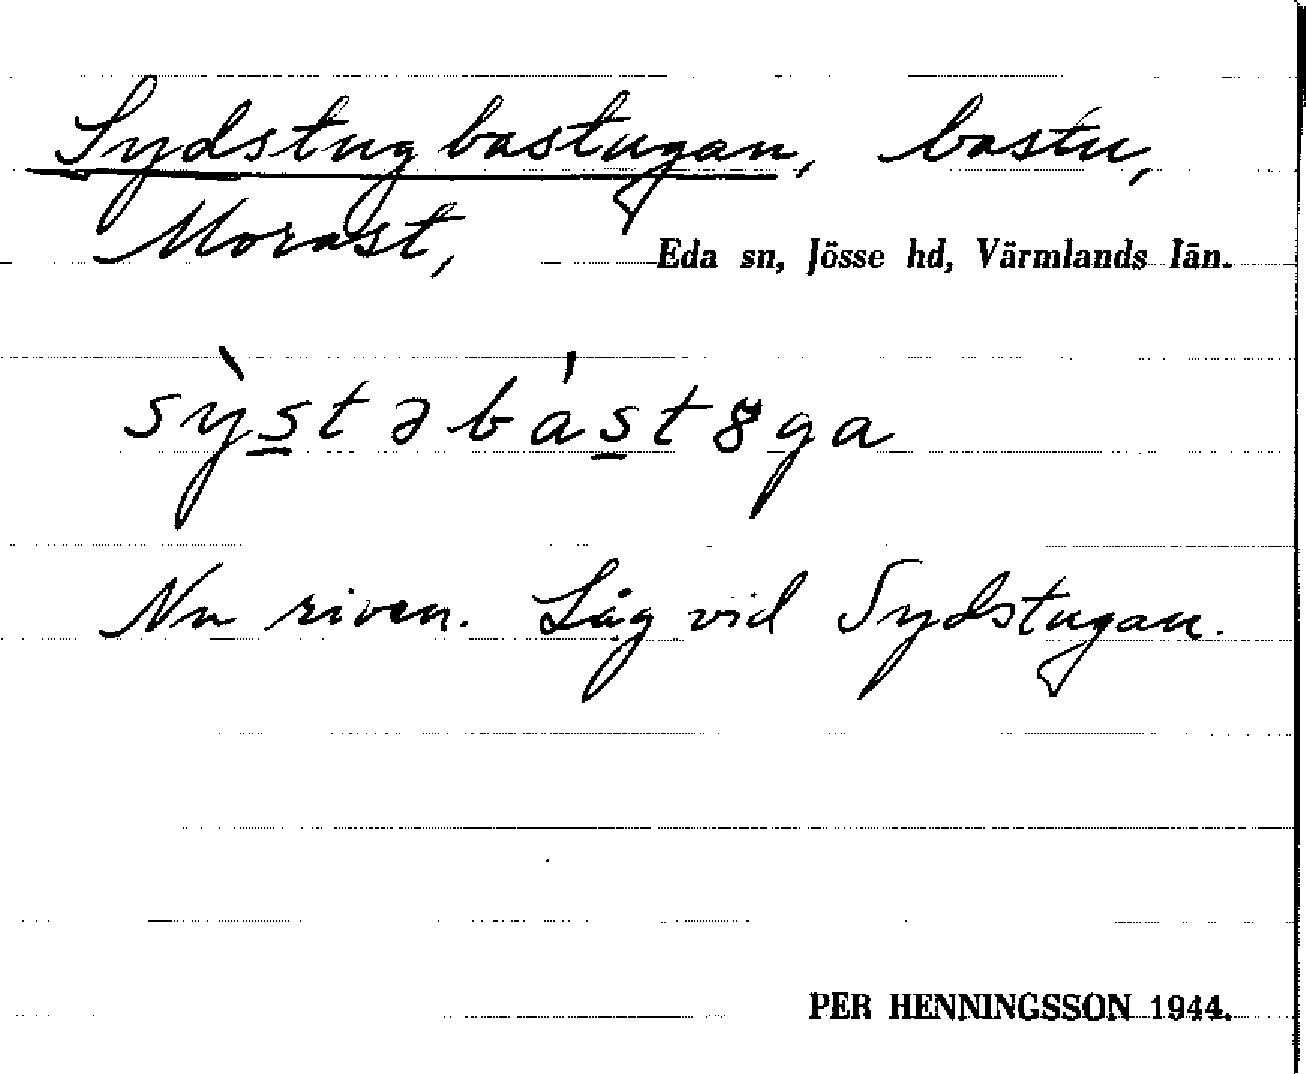 Sydstugbastugan, bastu,
Morast,
Eda sn, Jösse hd, Värmlands län.
sỳs̲təbás̲t8ga
Nu riven. Låg vid Sydstugan.
PER HENNINGSSON 1944.